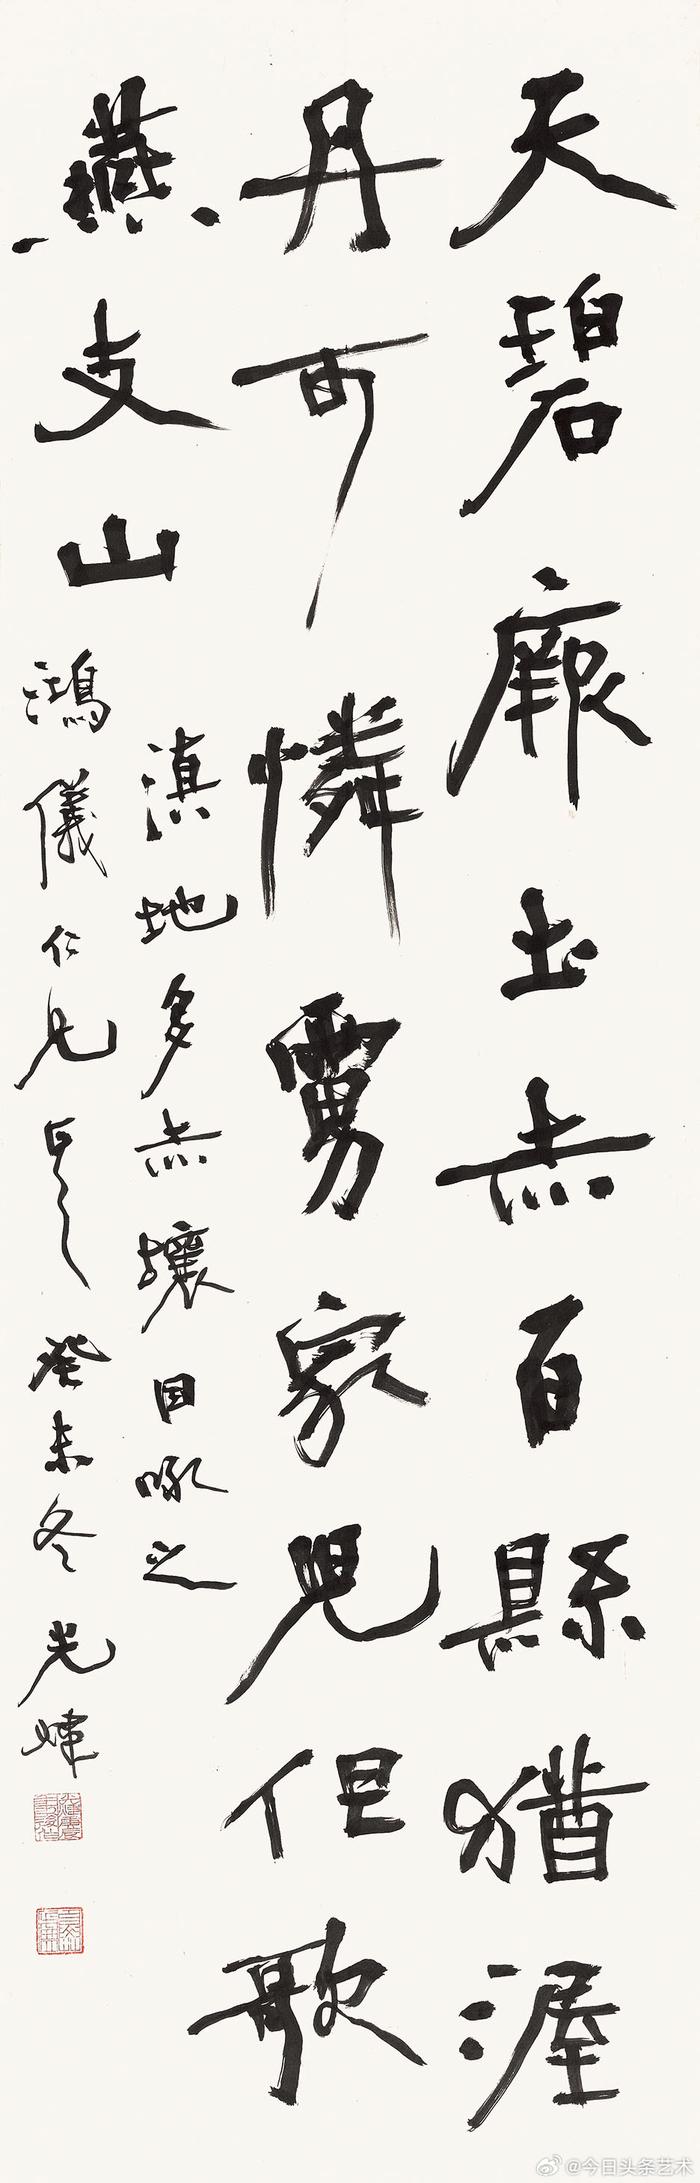 天碧厥土赤百縣猶渥
丹可憐虜家兒但歌
燕支山
滇地多赤壤因咏之
鴻儀仁兄 癸未冬 光煒
@今日头条艺术